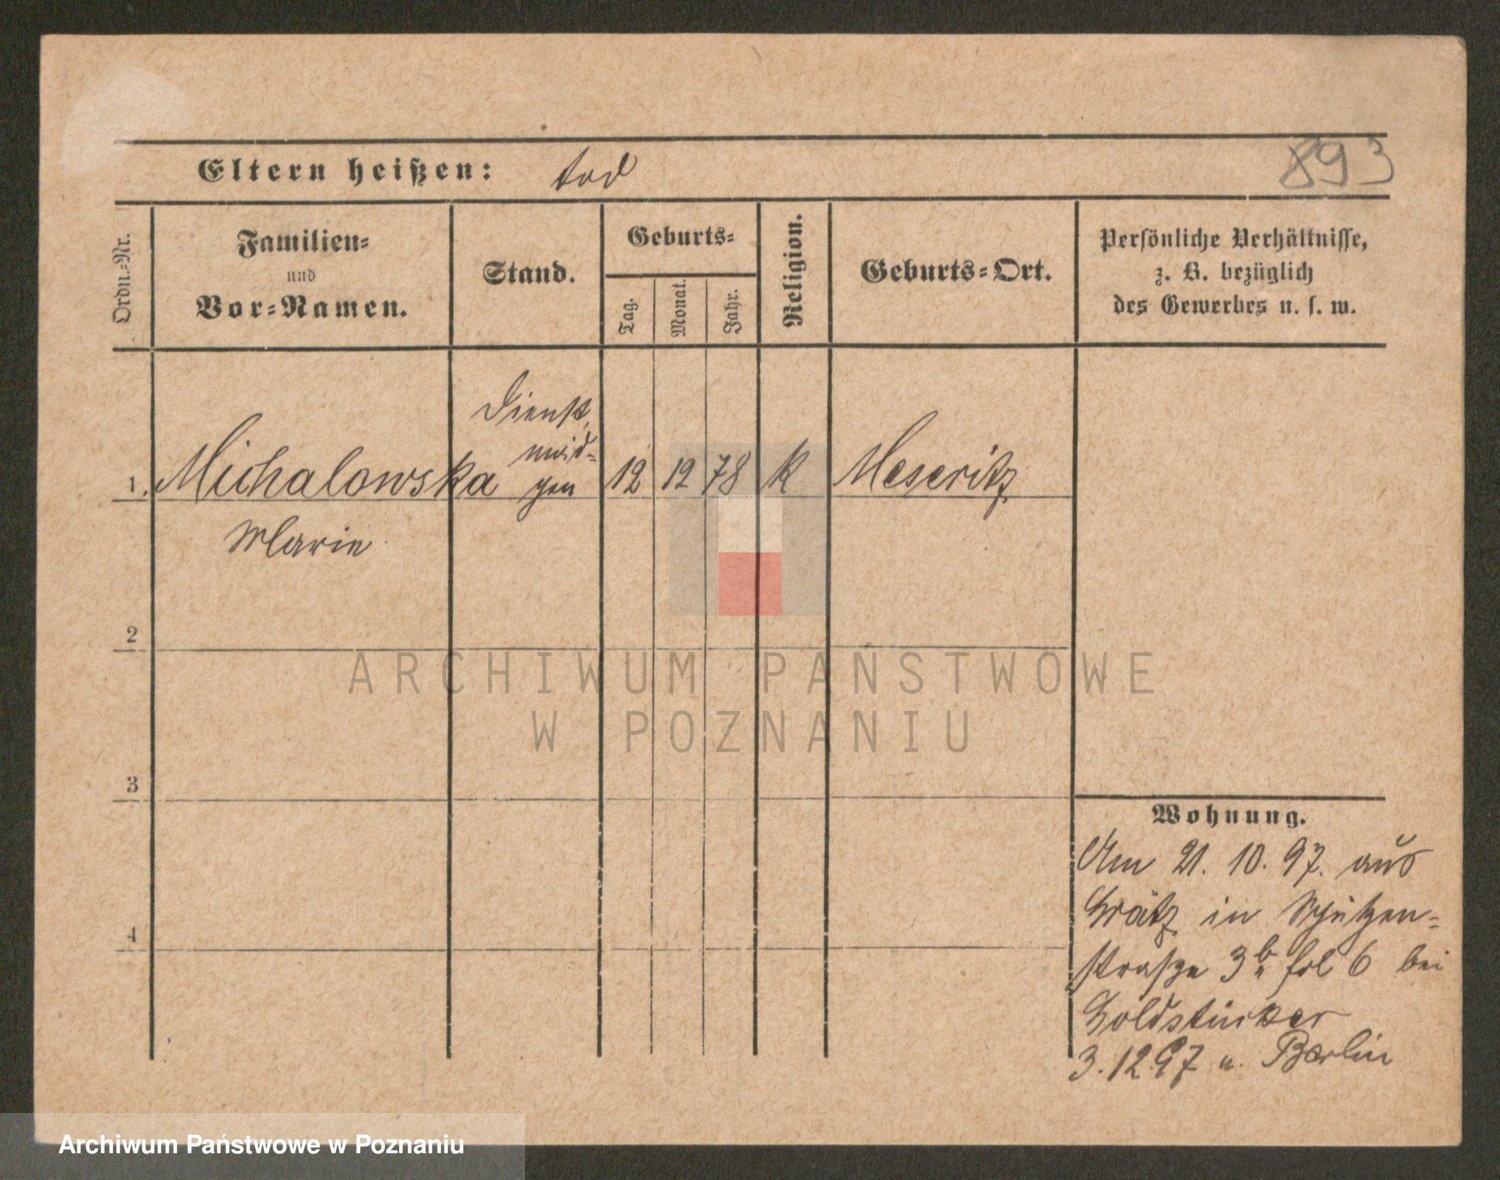 893
Eltern heißen: tod
Ordn.-Nr.
Familien-
und
Vor-Namen.
Stand.
Geburts-
Tag.
Monat.
Jahr.
Religion.
Geburts-Ort.
Persönliche Verhältnisse,
z. B. bezüglich
des Gewerbes u. s. w.
Dienst
mäd-
1. Michalowska gen 12 12 78 k Meseritz
Marie
2
3
4
Wohnung.
Am 21. 10. 97. aus
Grätz in Schützen-
straße 3b, fol 6 bei
Goldstücker
3. 12 97 n. Berlin
ARCHIWUM PAŃSTWOWE
W POZNANIU
Archiwum Państwowe w Poznaniu